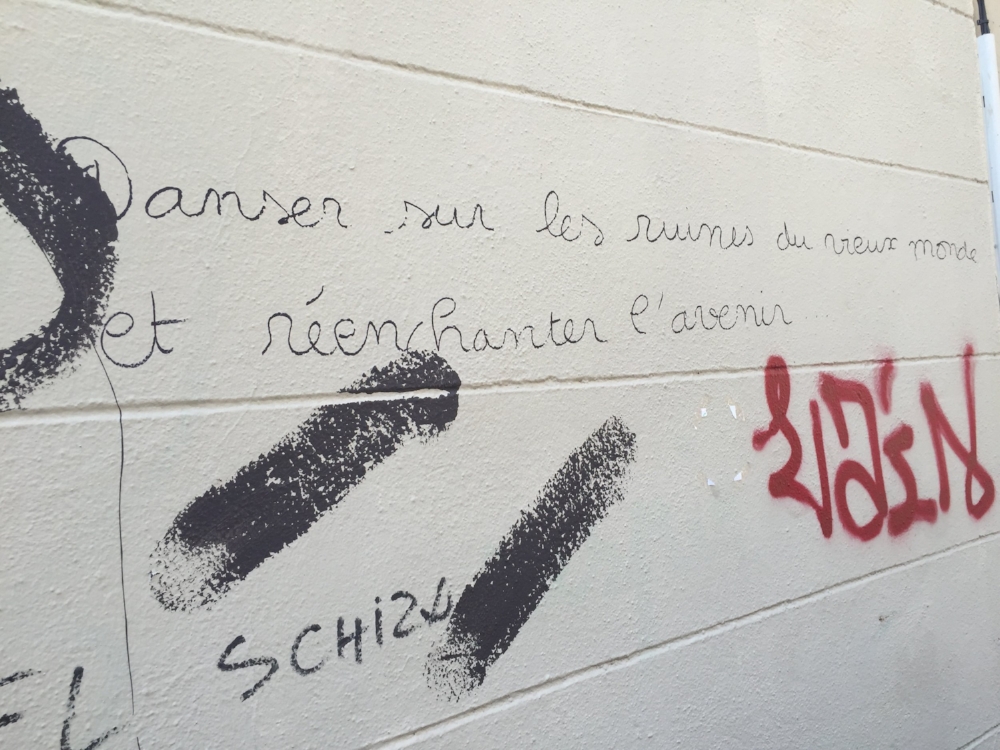 Danser sur les ruines du vieux monde
et réenchanter l'avenir...
SCHIZO
EL